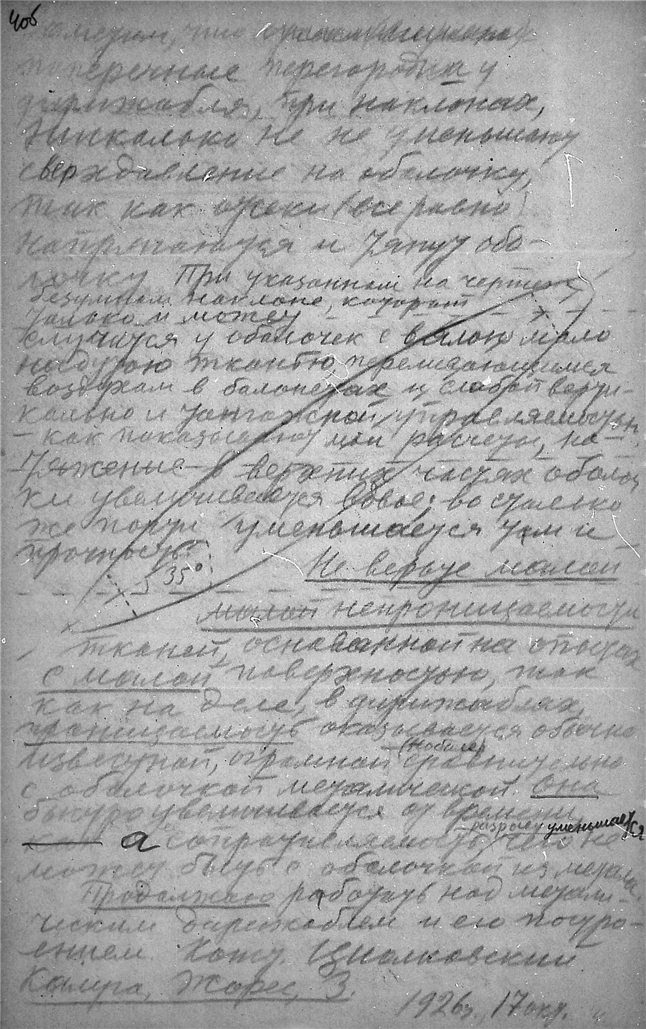 406
что
поперечные перегородки у
дирижабля, при наклонах,
нисколько не не уменьшают
сверхдавление на оболочку,
так как отсеки все равно
напрягаются и тянут обо-
лочку При указанном на чертеже
безумном наклоне, который
только и может
случится у оболочек с вялою мало
надутою тканью, перемещающимся
воздухом в балонетах и слабой верти-
кально и управляемостью
– как показывают мои расчеты, на-
тяжение в верхних частях оболоч
ки увеличивается вдвое; во столько
же почти уменьшается там и
прочность.
35°
Не верьте малой
малой непроницаемости
тканей, основанной на опытах
с малой поверхностью, так
как на деле, в дирижаблях,
проницаемость оказывается обычно
известной, огромной сравнительно
(Нобиле)
с оболочкой металической. Она
быстро увеличивается от времени,
разрыву уменьшается
а сопротивляемость чего не
может быть с оболочкой из метала.
Продолжаю работать над метали-
ческим дирижаблем и его построе-
ением. Конст. Циолковский
Калуга, Жорес, 3.
1926 г., 17 окт.